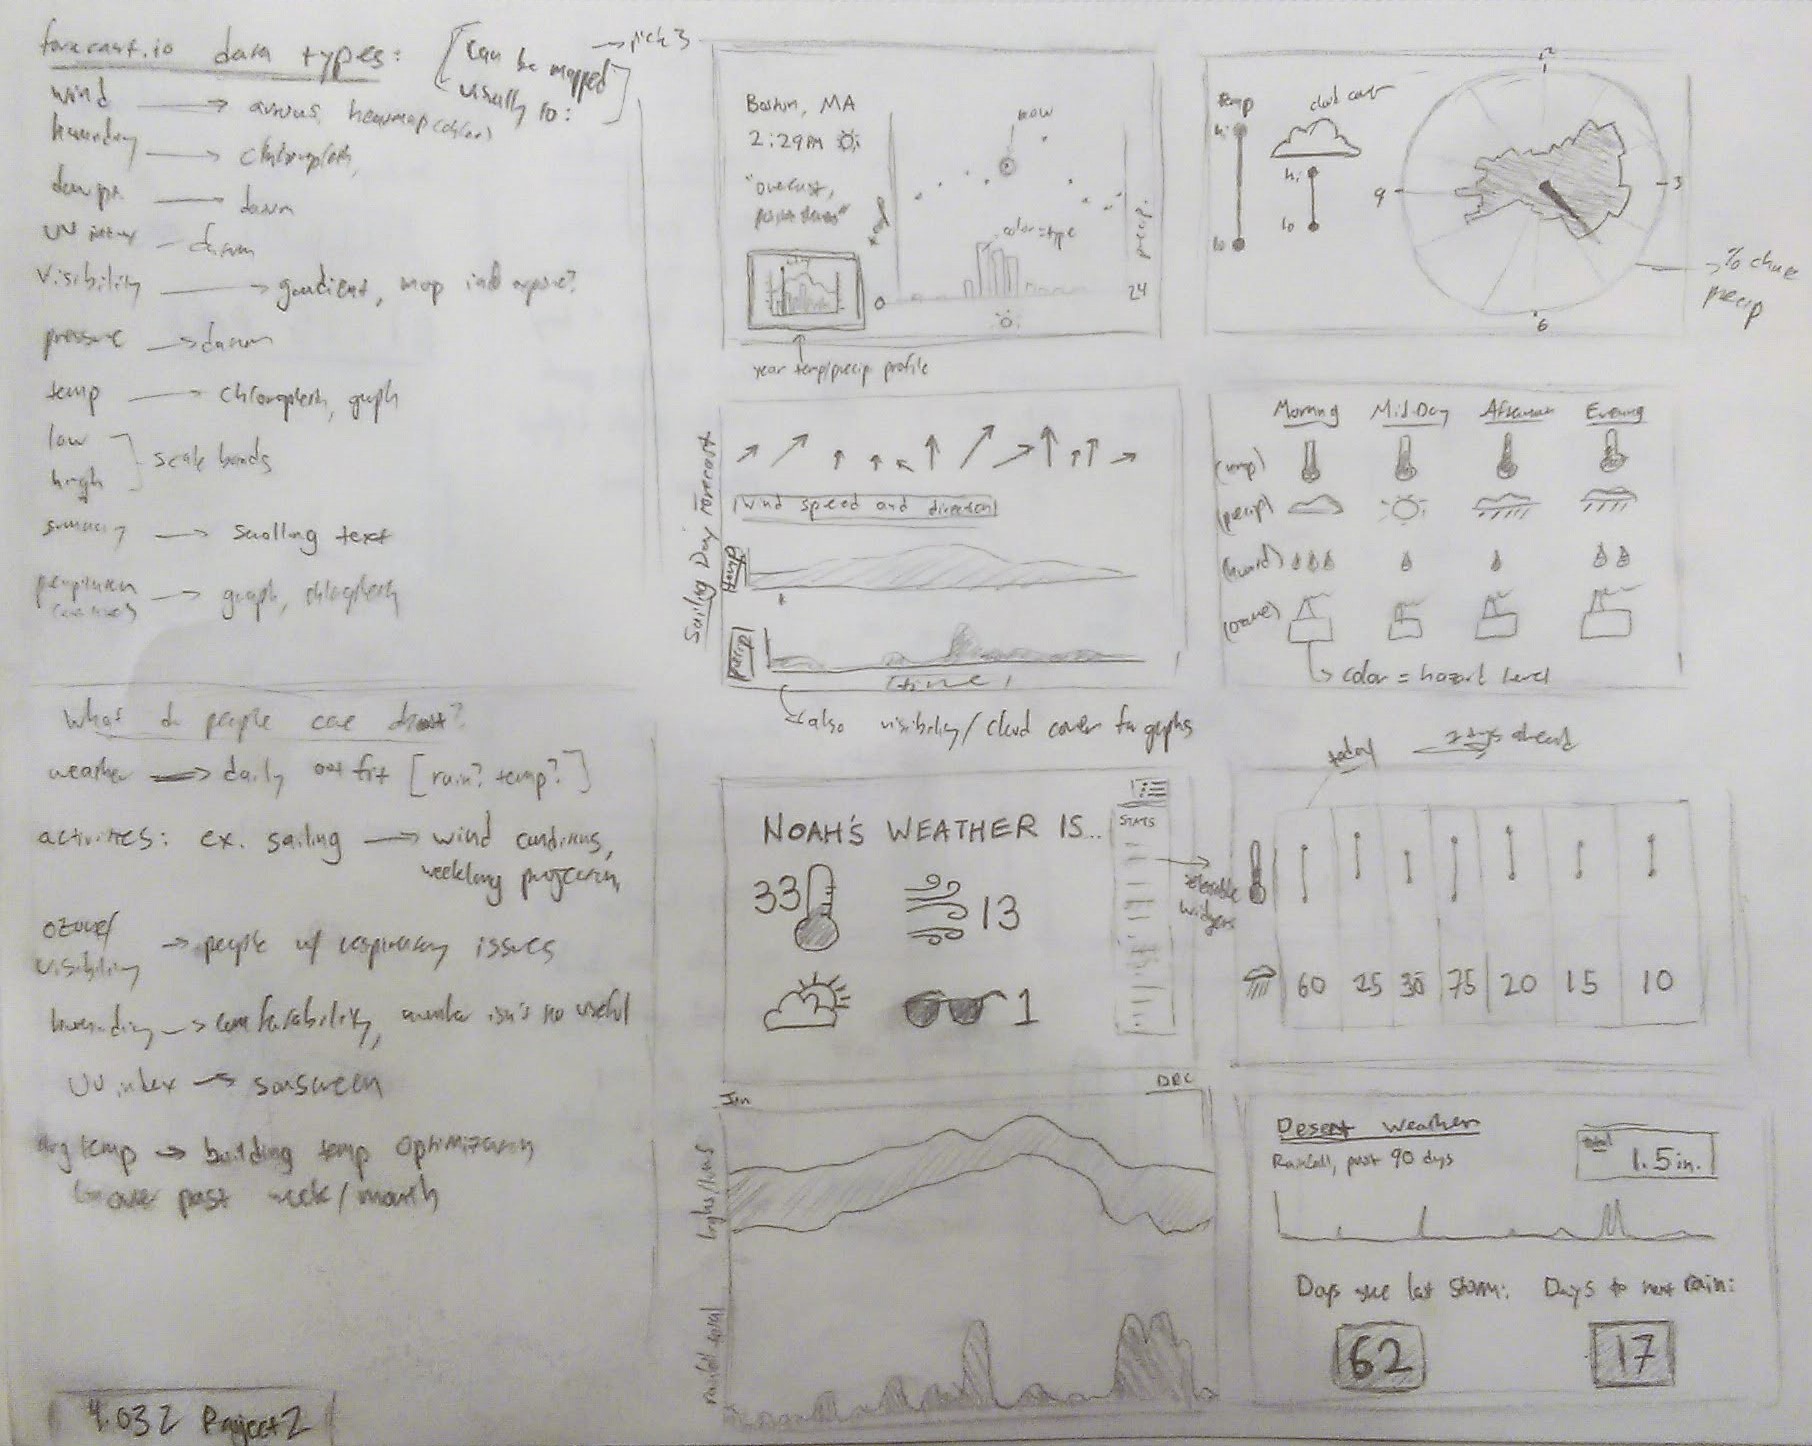 forecast.io data types:
[can be mapped
usually to:]
→ pick 3
wind → arrows, heatmap (color)
humidity → chloropleth,
dew pt. →
UV index –
visibility → gradient, map
pressure →
temp → chloropleth, graph
low
high
scale bands
summary → scrolling text
→ graph, chloropleth
What do people care about?
weather → daily outfit [rain? temp?]
activities: ex. sailing → wind conditions,
weeklong projection
ozone/
visibility
→ people w/ respiratory issues
humidity → comfortability, number isn't so useful
UV index → sunscreen
avg temp → building temp optimization
over past week/month
4.032 Project 2
Boston, MA
2:29PM
"overcast,
now
temp
color=type
precip.
0
24
year temp/precip profile
temp
hi
lo
cloud cover
hi
lo
12
3
6
9
→ % chance
precip
Sailing Day Forecast
Wind speed and direction
temp
precip
(time)
also visibility/cloud cover for graphs
Morning
Mid-Day
Afternoon
Evening
(temp)
(precip)
(humid)
(ozone)
color = hazard level
NOAH'S WEATHER IS...
STATS
33
13
1
selectable
widgets
today
days ahead
60
25
30
75
20
15
10
Jan
DEC
highs/lows
rainfall total
Desert Weather
Rainfall, past 90 days
total
1.5 in.
Days since last storm:
Days to next rain:
62
17